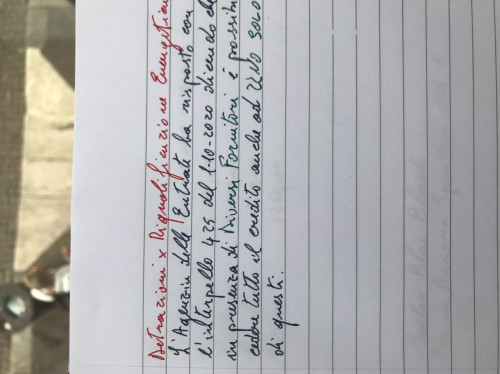 Detrazioni x Riqualificazione Energetica
L'Agenzia delle Entrate ha risposto con
l'interpello 425 del 1-10-2020 dicendo che
in presenza di Diversi Fornitori è possibile
cedere tutto il credito anche ad UNO SOLO
di questi.